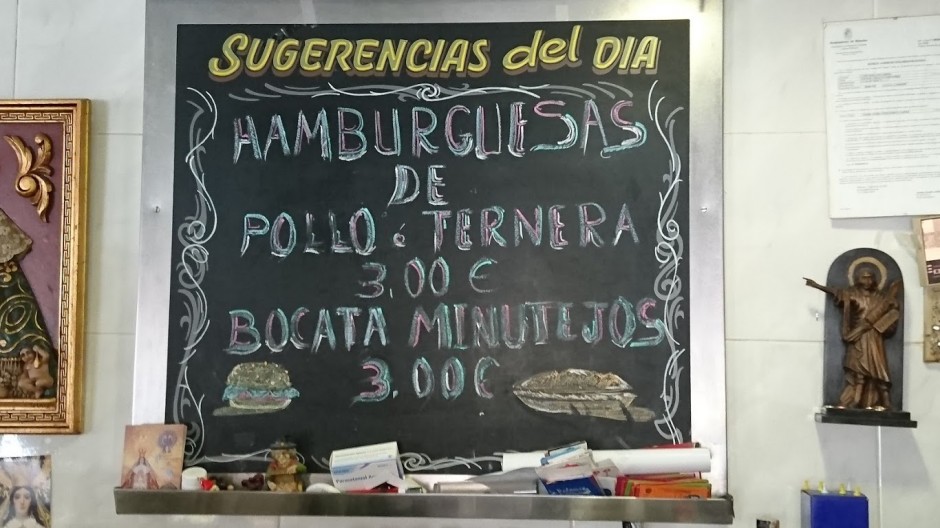 SUGERENCIAS del DIA
HAMBURGUESAS
DE
POLLO ó TERNERA
3.00 €
BOCATA MINUTEJOS
3.00€